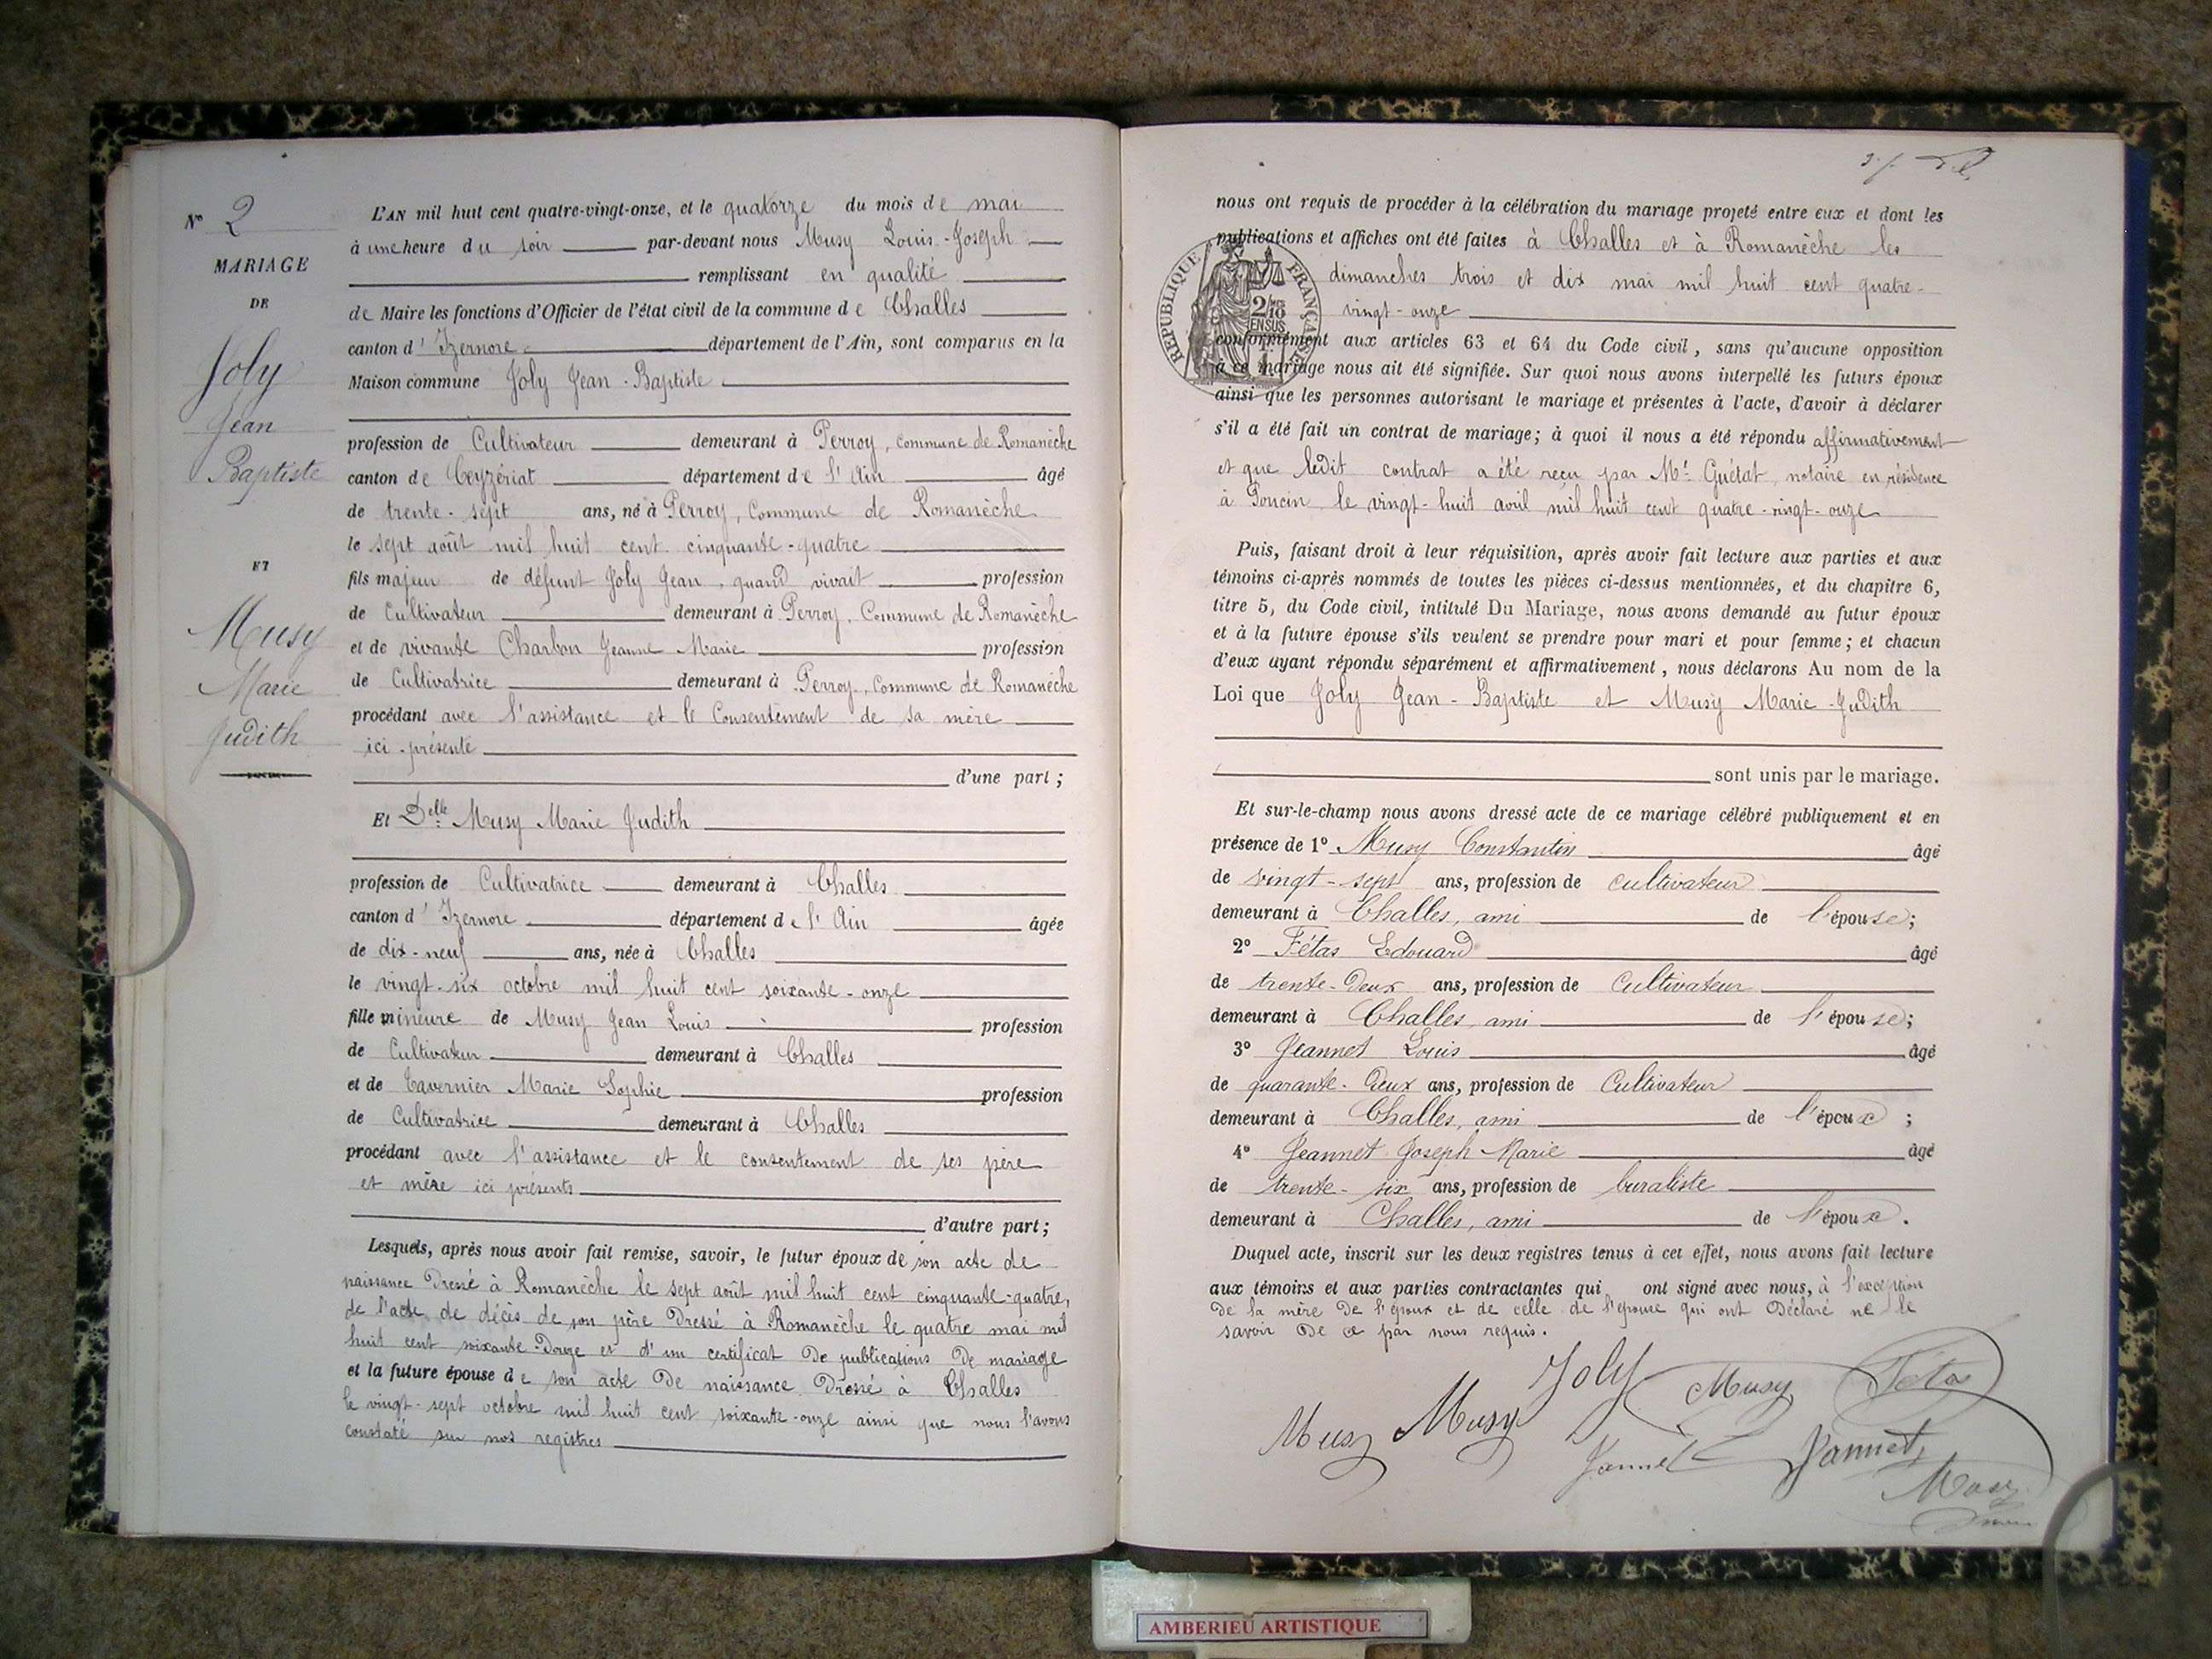 N° 2
MARIAGE
DE
Joly
Jean
Baptiste
ET
Musy
Marie
Judith
L'AN mil huit cent quatre-vingt-onze, et le quatorze du mois de mai
à une heure du soir par-devant nous Musy Louis-Joseph
remplissant en qualité
de Maire les fonctions d'Officier de l'état civil de la commune de Challes
canton d'Izernore département de l'Ain, sont comparus en la
Maison commune Joly Jean-Baptiste
profession de Cultivateur demeurant à Perroy, commune de Romanèche
canton de Ceyzériat département de l'Ain âgé
de trente-sept ans, né à Perroy, Commune de Romanèche
le sept août mil huit cent cinquante-quatre
fils majeur de défunt Joly Jean, quand vivait profession
de Cultivateur demeurant à Perroy, Commune de Romanèche
et de vivante Charbon Jeanne Marie profession
de Cultivatrice demeurant à Perroy, Commune de Romanèche
procédant avec l'assistance et le Consentement de sa mère
ici-présente
d'une part ;
Et Delle Musy Marie Judith
profession de Cultivatrice demeurant à Challes
canton d'Izernore département de l'Ain âgée
de dix-neuf ans, née à Challes
le vingt-six octobre mil huit cent soixante-onze
fille mineure de Musy Jean Louis profession
de Cultivateur demeurant à Challes
et de Tavernier Marie Sophie profession
de Cultivatrice demeurant à Challes
procédant avec l'assistance et le consentement de ses père
et mère ici présents
d'autre part ;
Lesquels, après nous avoir fait remise, savoir, le futur époux de son acte de
naissance Dressé à Romanèche le sept août mil huit cent cinquante-quatre,
de l'acte de décès de son père Dressé à Romanèche le quatre mai mil
huit cent soixante-Douze et d'un certificat De publications De mariage
et la future épouse de son acte De naissance Dressé à Challes
le vingt-sept octobre mil huit cent soixante-onze ainsi que nous l'avons
constaté sur nos registres
nous ont requis de procéder à la célébration du mariage projeté entre eux et dont les
publications et affiches ont été faites à Challes et à Romanèche les
dimanches trois et dix mai mil huit cent quatre-
vingt-onze
RÉPUBLIQUE FRANÇAISE
2/10 EN SUS
conformément aux articles 63 et 64 du Code civil, sans qu'aucune opposition
à ce mariage nous ait été signifiée. Sur quoi nous avons interpellé les futurs époux
ainsi que les personnes autorisant le mariage et présentes à l'acte, d'avoir à déclarer
s'il a été fait un contrat de mariage; à quoi il nous a été répondu affirmativement
et que ledit contrat a été reçu par Me Guétat, notaire en résidence
à Poncin le vingt-huit avril mil huit cent quatre-vingt-onze
Puis, faisant droit à leur réquisition, après avoir fait lecture aux parties et aux
témoins ci-après nommés de toutes les pièces ci-dessus mentionnées, et du chapitre 6,
titre 5, du Code civil, intitulé Du Mariage, nous avons demandé au futur époux
et à la future épouse s'ils veulent se prendre pour mari et pour femme ; et chacun
d'eux ayant répondu séparément et affirmativement, nous déclarons Au nom de la
Loi que Joly Jean-Baptiste et Musy Marie-Judith
sont unis par le mariage.
Et sur-le-champ nous avons dressé acte de ce mariage célébré publiquement et en
présence de 1° Musy Constantin âgé
de vingt-sept ans, profession de cultivateur
demeurant à Challes, ami de l'épouse ;
2° Fétas Edouard âgé
de trente-Deux ans, profession de Cultivateur
demeurant à Challes, ami de l'épouse ;
3° Jeannet Louis âgé
de quarante-Deux ans, profession de Cultivateur
demeurant à Challes, ami de l'époux ;
4° Jeannet Joseph Marie âgé
de trente-six ans, profession de buraliste
demeurant à Challes, ami de l'époux.
Duquel acte, inscrit sur les deux registres tenus à cet effet, nous avons fait lecture
aux témoins et aux parties contractantes qui ont signé avec nous, à l'exception
De la mère De l'époux et de celle de l'épouse qui ont Déclaré ne le
savoir De ce par nous requis.
Joly Musy Fétas
Musy Musy
Jannet Jannet
Musy
AMBERIEU ARTISTIQUE